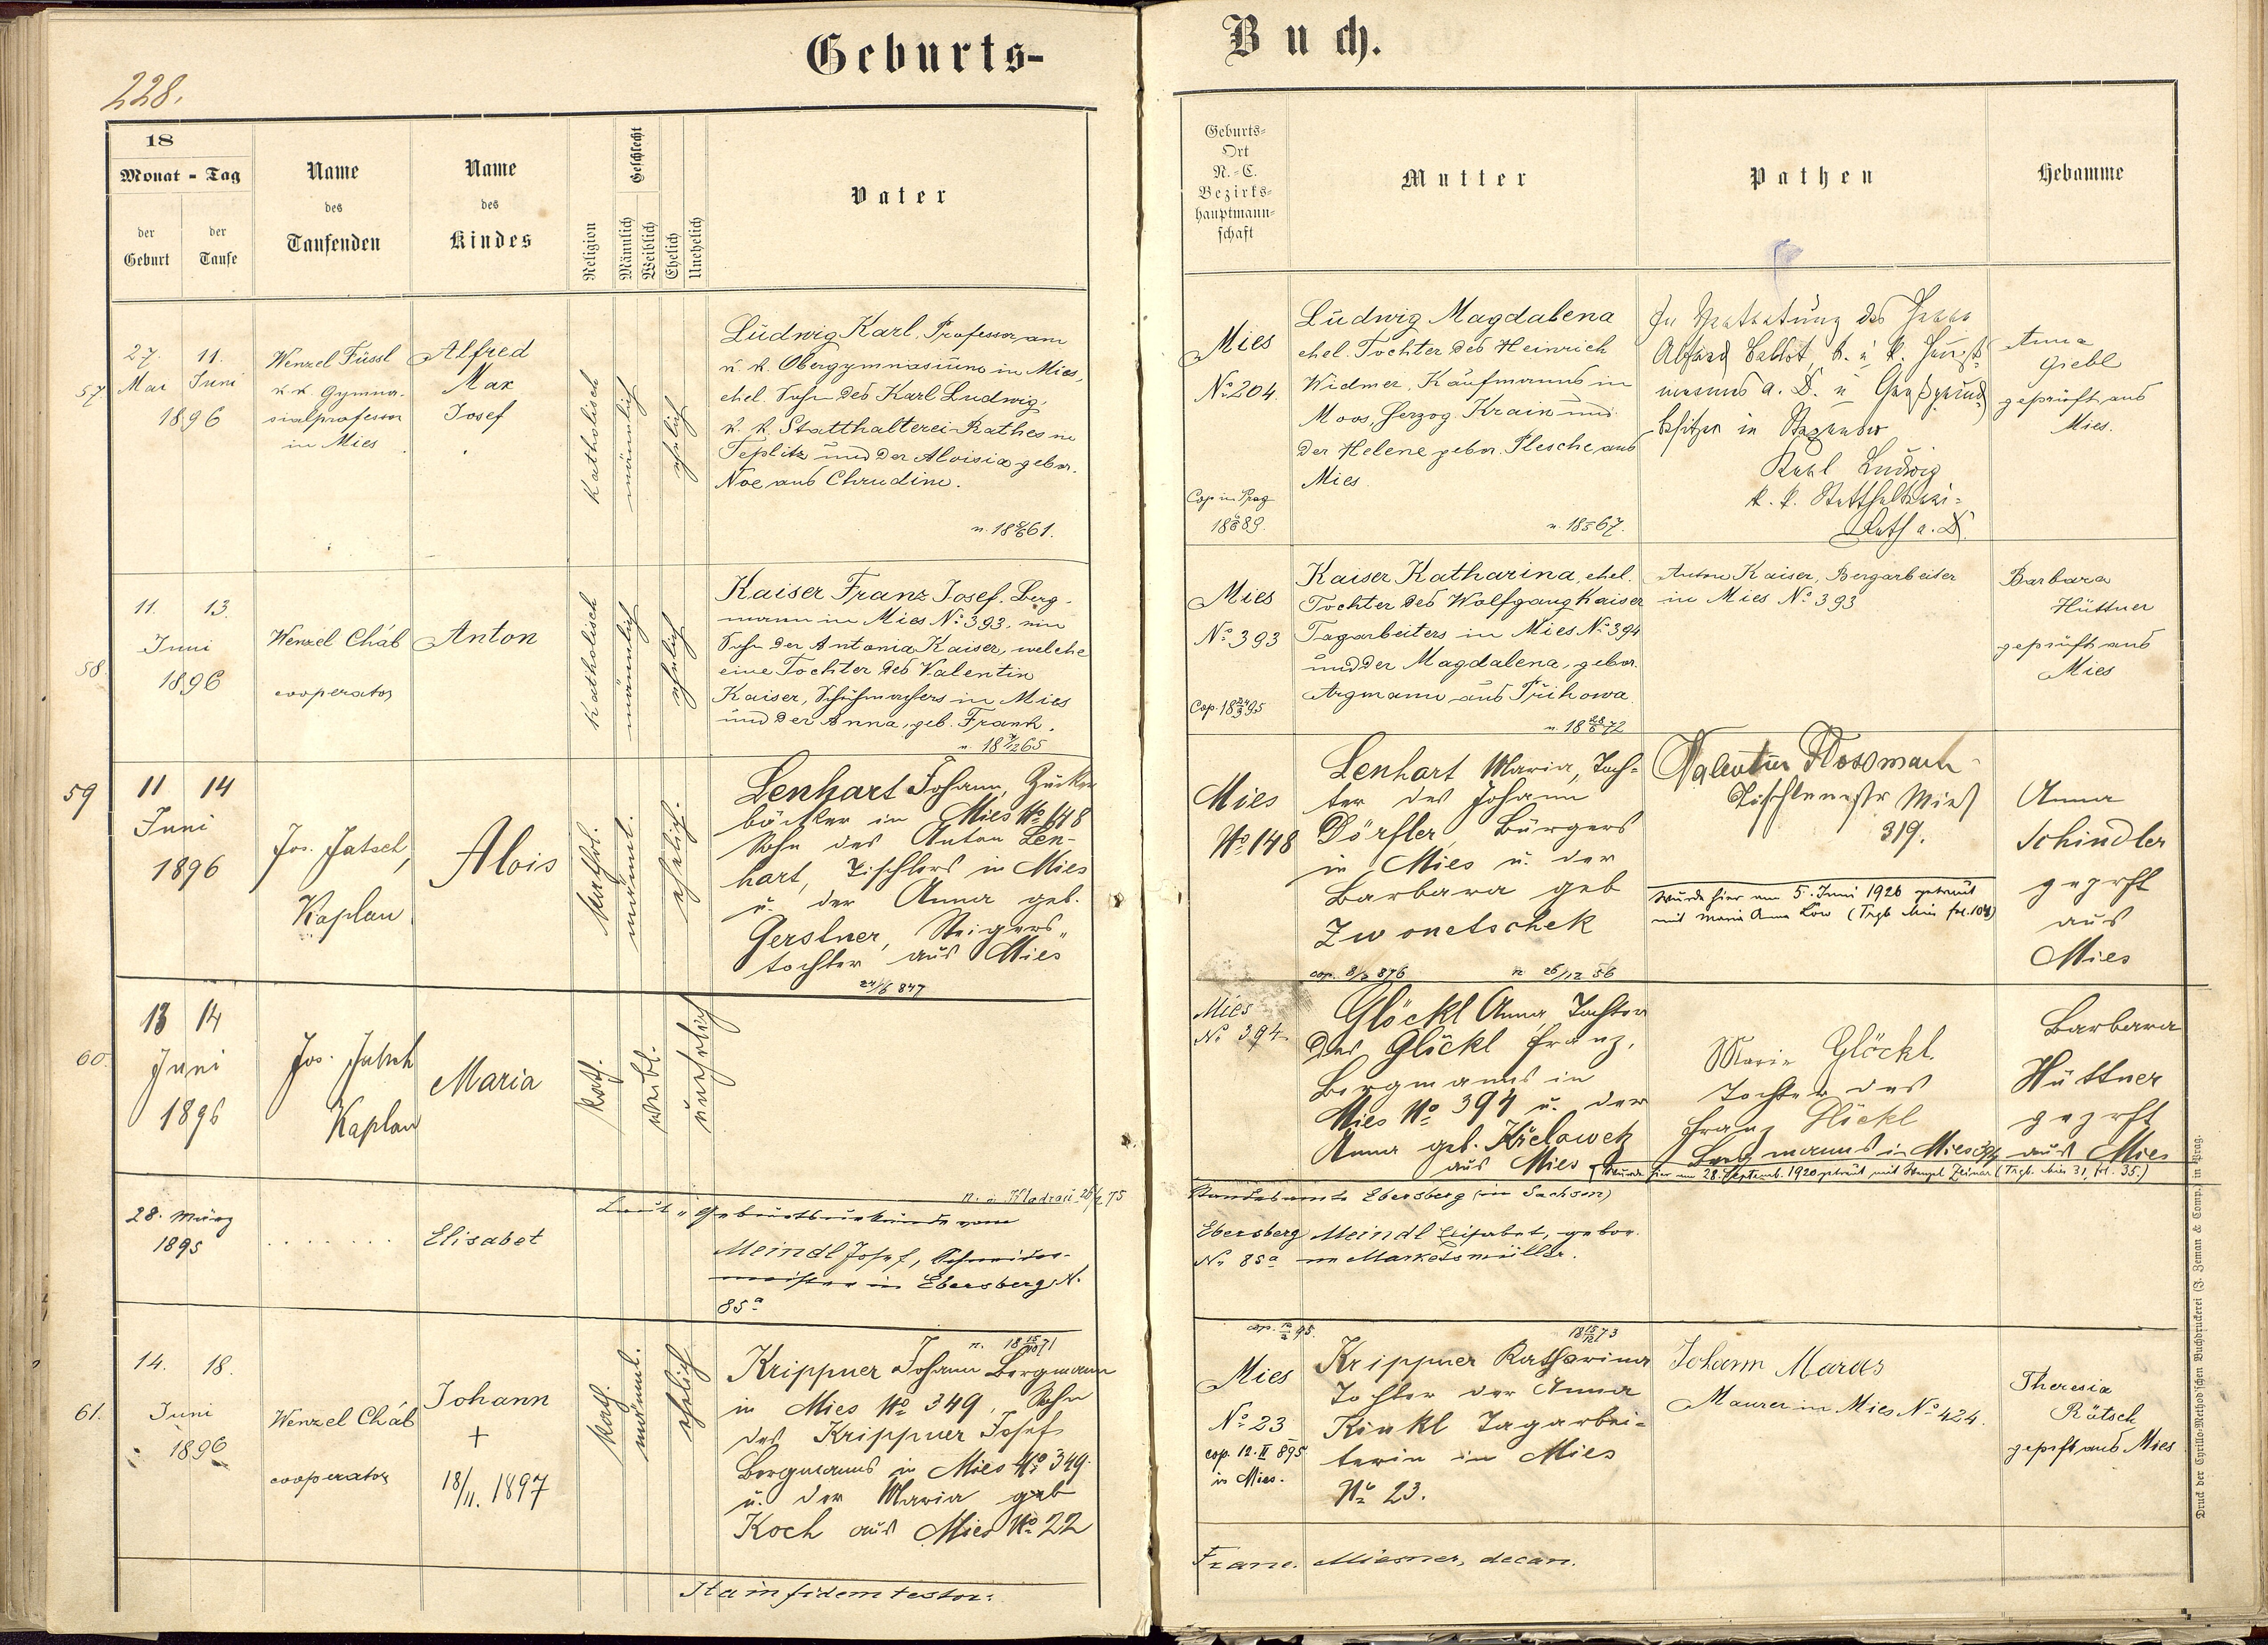 Geburts-
Buch.
228.
18
Monat - Tag
der Geburt
der Taufe
Name
des
Taufenden
Name
des
Kindes
Religion
Geschlecht
Männlich
Weiblich
Ehelich
Unehelich
Vater
Geburts-
Ort
N.-C.
Bezirks-
hauptmann-
schaft
Mutter
Pathen
Hebamme
57
27. 11.
Mai Juni
1896
Wenzel Füssl
k.k. Gymna-
sialprofessor
in Mies
Alfred
Max
Josef
katholisch
männlich
ehelich
Ludwig Karl, Professor am
k. k. Obergymnasium in Mies,
ehel. Sohn des Karl Ludwig,
k. k. Statthalterei-Rathes in
Teplitz und der Aloisia gebor.
Noe aus Chrudim.
61.
Mies
No. 204.
Cop in Prag
89.
Ludwig Magdalena
ehel. Tochter des Heinrich
Widmer, Kaufmanns in
Moos, Herzog. Krain und
der Helene gebor. Plesche aus
Mies
n. 1867.
In Vertretung des Herrn
k. u. k. Haupt-
manns a. D. u. Großgrund
besitzer in
Karl Ludwig
k. k. Statthalterei-
Rath a. D.
Anna
Giebl
geprüft aus
Mies.
58.
11. 13.
Juni
1896
Wenzel Cháb
cooperator
Anton
katholisch
männlich
ehelich
Kaiser Franz Josef, Berg-
mann in Mies No. 393, ein
Sohn der Antonia Kaiser, welche
eine Tochter des Valentin
Kaiser, Schuhmachers in Mies
und der Anna, geb. Frank.
n. 18 7/12 65
Mies
No. 393
Cop. 18 95
Kaiser Katharina, ehel.
Tochter des Wolfgang Kaiser
Tagarbeiters in Mies No. 394
und der Magdalena, gebor.
Argmann aus Prihowa.
n. 18 72
Anton Kaiser, Bergarbeiter
in Mies No. 393
Barbara
Hüttner
geprüft aus
Mies
59
11 14
Juni
1896
Jos. Jatsch,
Kaplan
Alois
kathol.
männl.
ehelich.
Lenhart Johann, Zucker
bäcker in Mies No 148
Sohn des Anton Len-
hart, Tischlers in Mies
u. der Anna geb.
Gerstner, Steigers-
tochter aus Mies
24/6 847
Mies
No 148
Lenhart Maria, Toch-
ter des Johann
Dörfler, Bürgers
in Mies u. der
Barbara geb
Zwonetschek
cop. 8/2 876 n 26/12 56
Valentin
Tischlermstr Mies
319.
Wurde hier am 5. Juni 1926 getraut
mit Maria Anna Löw (Trgb Mies fol. 104)
Anna
Schindler
geprft
aus
Mies
60.
13 14
Juni
1896
Jos. Jatsch
Kaplan
Maria
kath.
weibl.
unehelich
Mies
No. 394
Glöckl Anna, Tochter
des Glöckl Franz,
Bergmanns in
Mies No 394 u. der
Anna geb. Křelowetz
aus Mies
n. in Kladrau 26/7 75
Marie Glöckl
Tochter des
Franz Glöckl
Bergmanns in Mies 394
Wurde hier am 28. Septemb. 1920 getraut mit Wenzel Zeiner (Trgb. Mies 31, fol. 35.)
Barbara
Hüttner
geprft
aus Mies
28. März
1895
. . . . . . .
Elisabet
Laut Geburtsurkunde vom
Meindl Josef, Schneider-
meister in Ebersberg N.
85a
Standesamte Ebersberg (in Sachsen)
Ebersberg
No. 85a
Meindl Elisabet, gebor.
Marketsmüller.
61.
14. 18.
Juni
1896
Wenzel Cháb
cooperator
Johann
+
18/II. 1897
kath.
männl.
ehelich
n. 18 15/10 71
Krippner Johann Bergmann
in Mies No 349, Sohn
des Krippner Josef
Bergmanns in Mies No 349
u. der Maria geb
Koch aus Mies No. 22
cop. 12/2 95.
Mies
No. 23
cop. 12. II 895
in Mies.
18 15/12 73
Krippner Katharina
Tochter der Anna
Kinkl Tagarbei-
terin in Mies
No. 23.
Johann Maras
Maurer in Mies No. 424.
Theresia
Rötsch
geprft aus Mies
Ita in fidem testor:
Franc. Miesner, decan.
Druck der Cyrillo-Method'schen Buchdruckerei (J. Zeman & Comp.) in Prag.